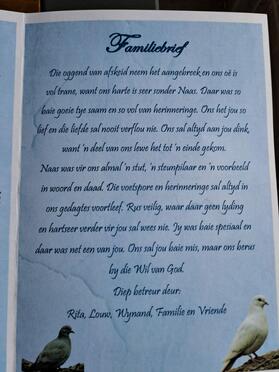 Familiebrief
Die oggend van afskeid neem het aangebreek en ons oë is
vol trane, want ons harte is seer sonder Naas. Daar was so
baie goeie tye saam en so vol van herinneringe. Ons het jou so
lief en die liefde sal nooit verflou nie. Ons sal altyd aan jou dink,
want 'n deel van ons lewe het tot 'n einde gekom.
Naas was vir ons almal 'n stut, 'n steunpilaar en 'n voorbeeld
in woord en daad. Die voetspore en herinneringe sal altyd in
ons gedagtes voortleef. Rus veilig, waar daar geen lyding
en hartseer verder vir jou sal wees nie. Jy was baie spesiaal en
daar was net een van jou. Ons sal jou baie mis, maar ons berus
by die Wil van God.
Diep betreur deur:
Rita, Louw, Wynand, Familie en Vriende